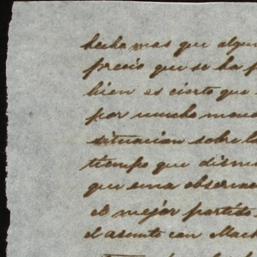 hecho mas que algun
precio que se ha p
bien es cierto que
por mucho
situacion sobre l
tiempo que dismi
que una observa
el mejor partido
el asunto con Mach